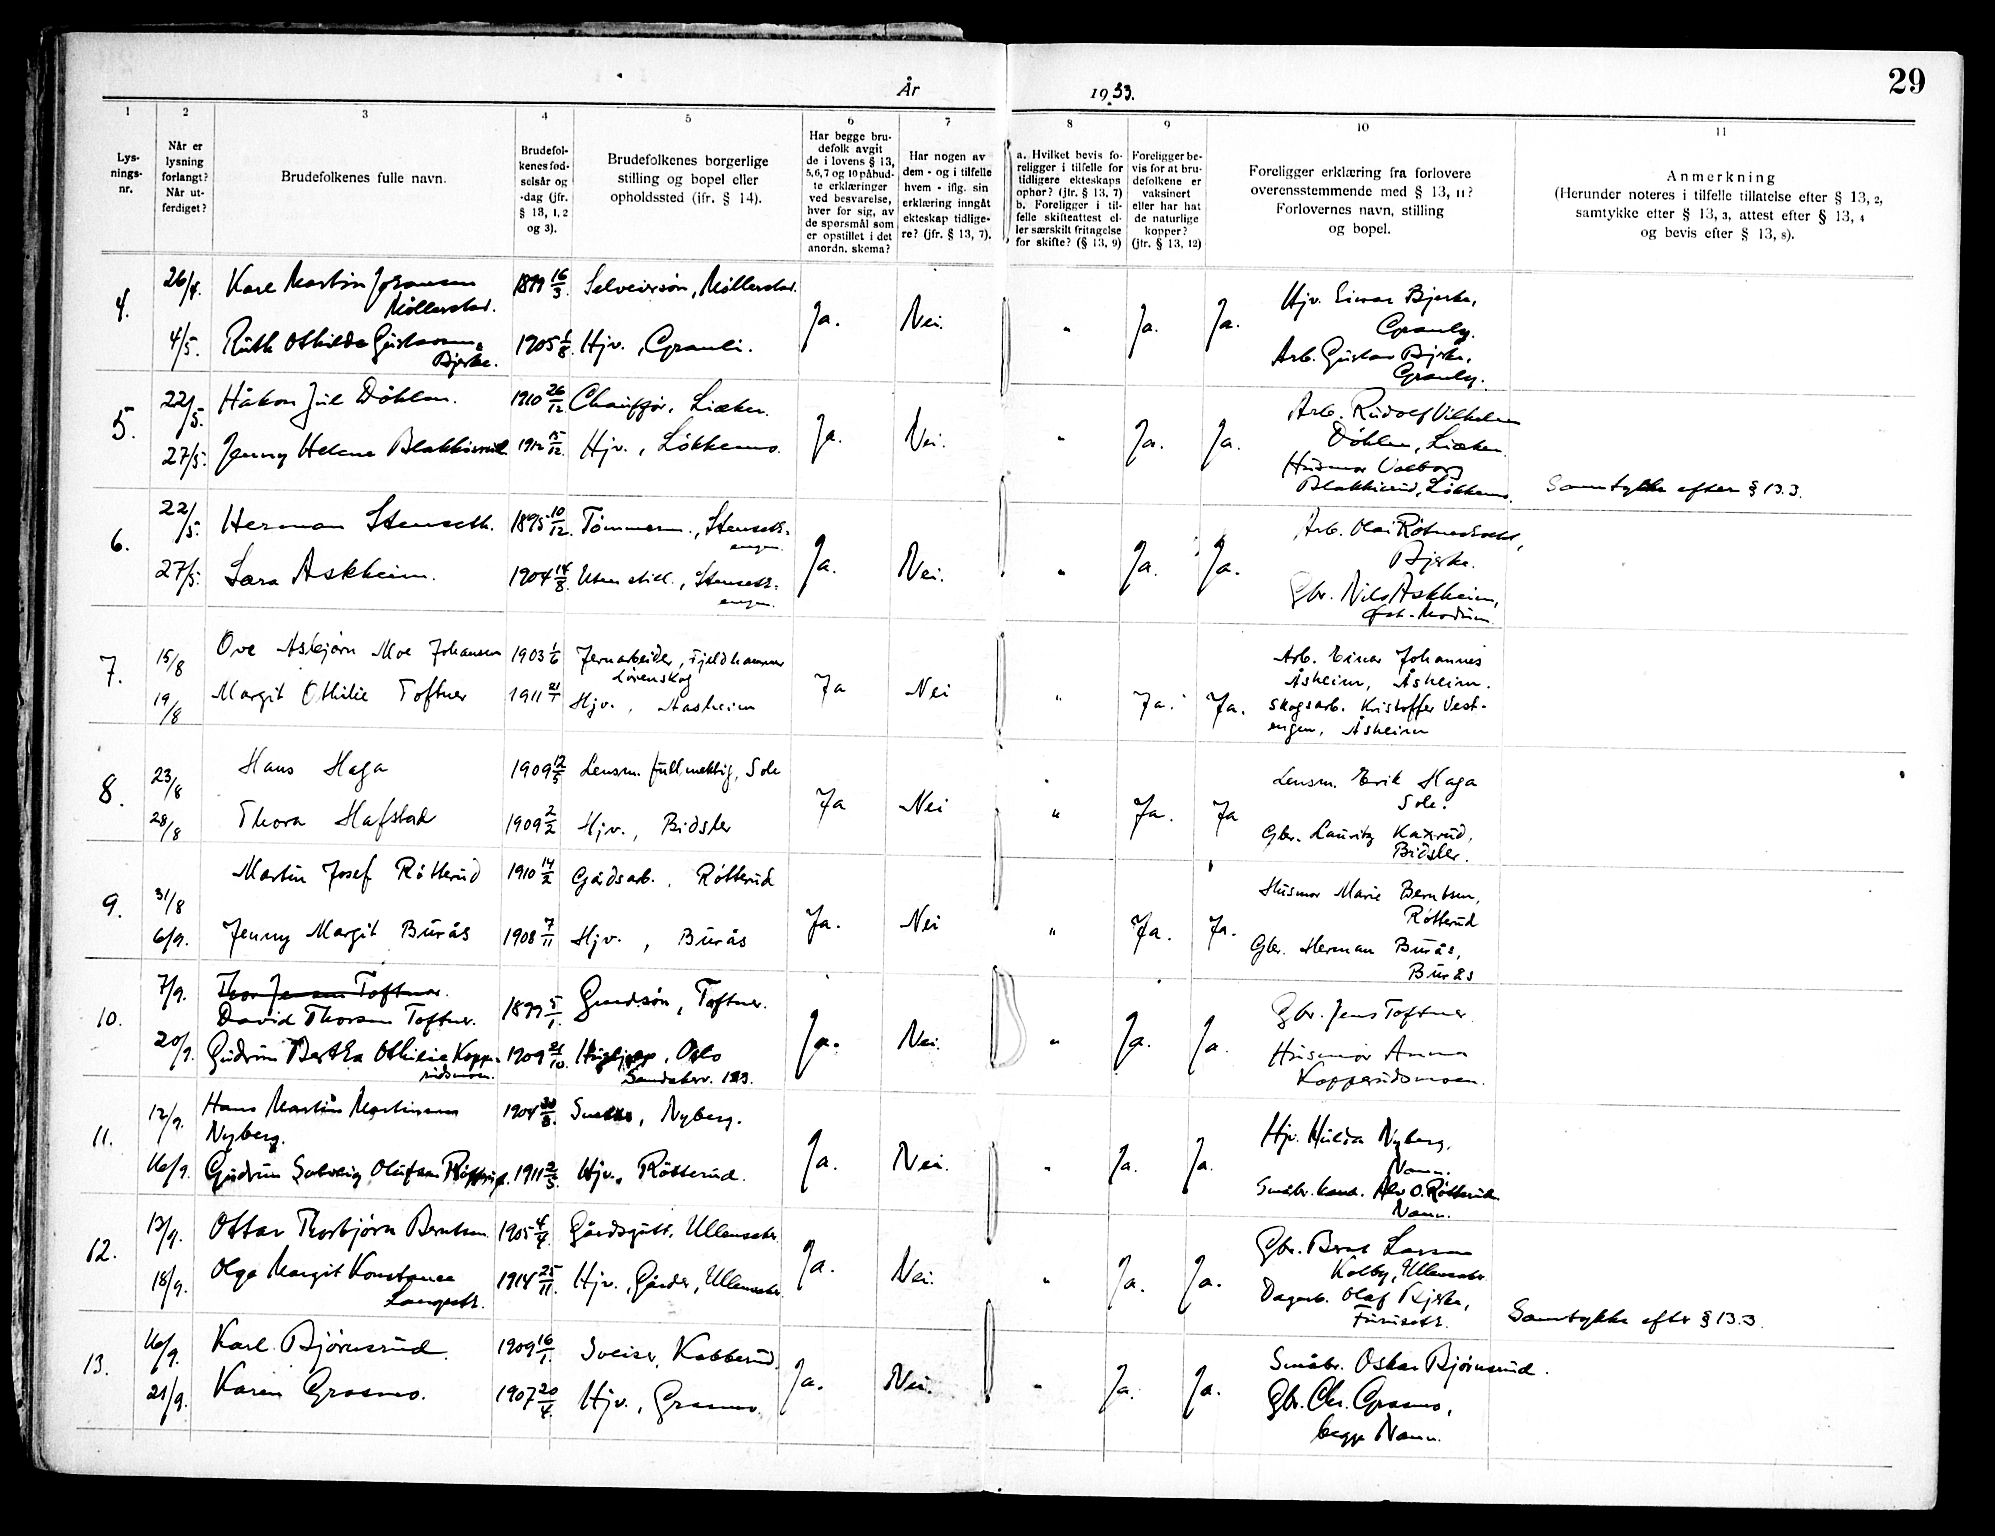 29
År 1933.
1 2 3 4 5 6 7 8 9 10 11
Lys-
nings-
nr.
Når er
lysning
forlangt?
Når ut-
ferdiget?
Brudefolkenes fulle navn.
Brudefol-
kenes fød-
selsår og
-dag (jfr.
§ 13, 1, 2
og 3).
Brudefolkenes borgerlige
stilling og bopel eller
opholdssted (jfr. § 14).
Har begge bru-
defolk avgit
de i lovens § 13,
5,6,7 og 10 påbud-
te erklæringer
ved besvarelse,
hver for sig, av
de spørsmål som
er opstillet i det
anordn. skema?
Har nogen av
dem - og i tilfelle
hvem - iflg. sin
erklæring inngåt
ekteskap tidlige-
re? (jfr. § 13, 7).
a. Hvilket bevis fo-
religger i tilfelle for
tidligere ekteskaps
ophør? (jfr. § 13, 7)
b. Foreligger i til-
felle skifteattest el-
ler særskilt fritagelse
for skifte? (§ 13, 9)
Foreligger be-
vis for at bru-
defolkene er
vaksinert
eller har hat
de naturlige
kopper?
(jfr. § 13, 12)
Foreligger erklæring fra forlovere
overensstemmende med § 13, 11?
Forlovernes navn, stilling
og bopel.
Anmerkning
(Herunder noteres i tilfelle tillatelse efter § 13, 2,
samtykke efter § 13, 3, attest efter § 13, 4
og bevis efter § 13, 8).
4. 26/4. Karl Martin Johansen
Møllerstad.
1899 16/3. Selveiersøn, Møllerstad.
4/5. Ruth Othilde Gustavsen
Bjerke.
1905 1/8. Hjv., Granli.
Ja. Nei. " Ja. Ja.
Hjv. Einar Bjerke,
Granly.
Arb. Gustav Bjerke,
Granly.
5. 22/5. Håkon Jul Døhlen. 1910 26/12. Chauffør, Liaker.
27/5. Jenny Helene Blakkisrud 1912 15/12. Hjv., Løkkemo.
Ja. Nei. " Ja. Ja.
Arb. Rudolf Vilhelm
Døhlen, Liaker.
Husmor Valborg
Blakkisrud, Løkkemo.
Samtykke efter § 13.3.
6. 22/5. Herman Stenseth. 1895 10/12. Tømmerm., Stenseth-
engen.
27/5. Sara Askheim. 1904 14/8. Uten still., Stenseth-
engen.
Ja. Nei. " Ja. Ja.
Arb. Olai
Bjerke.
Gbr. Nils Askheim,
Øst-Modum.
7. 15/8 Ove Asbjørn Moe Johansen 1903 1/6 Jernarbeider, Fjeldhammer
Lørenskog
19/8 Margit Othilie Toftner 1911 21/1 Hjv., Aasheim
Ja Nei " Ja. Ja.
Arb. Einar Johannes
Åsheim, Åsheim.
Skogsarb. Kristoffer Vest-
engen, Åsheim
8. 23/8 Hans Haga 1909 12/5 Lensm. fullmektig, Sole
28/8 Thora Hafstad 1909 2/2 Hjv., Bidsler
Ja Nei " Ja. Ja
Lensm. Erik Haga
Sole.
Gbr. Lauritz Kaxrud,
Bidsler.
9. 31/8 Martin Josef Røtterud 1910 14/2 Gårdsarb., Røtterud
6/9. Jenny Margit Burås 1908 7/11 Hjv., Burås
Ja. Nei " Ja. Ja.
Husmor Marie Berntsen,
Røtterud
Gbr. Herman Burås,
Burås
10. 7/9. Thor Jensen Toftner.
David Thorsen Toftner. 1899 5/1. Grndsøn, Toftner.
20/9. Gudrun Bertha Othilie Kopp-
rudsmoen. 1909 21/10. Hushjelp, Oslo
Sandakerv.
Ja. Nei. " Ja. Ja.
Gbr. Jens Toftner
Husmor Anna
Kopperudsmoen.
11. 12/9. Hans Martin Martinsen
Nyberg.
1904 30/3. Nyberg.
16/9. Gudrun Solveig Olufsen Røtterud. 1911 2/3. Hjv., Røtterud.
Ja. Nei. " Ja. Ja.
Hjv. Hulda Nyberg,
Nann.
Småbr. O. Røtterud
Nann.
12. 13/9. Ottar Thorbjørn Berntsen 1905 4/4. Gårdsgutt, Ullensaker.
18/9. Olga Margit Konstanse
Langseth.
1914 25/11. Hjv., Garder, Ullensaker.
Ja. Nei. " Ja. Ja.
Gbr. Bernt Larsen
Kolby, Ullensaker
Dagarb. Olaf Bjerke,
Furuseth.
Samtykke efter § 13.3.
13. 16/9. Karl Bjørnsrud. 1909 16/1. Sveiser, Kabberud.
21/9. Karen Grasmo. 1907 20/4. Hjv., Grasmo.
Ja. Nei. " Ja. Ja.
Småbr. Oskar Bjørnsrud.
Gbr. Chr. Grasmo,
begge Nann.